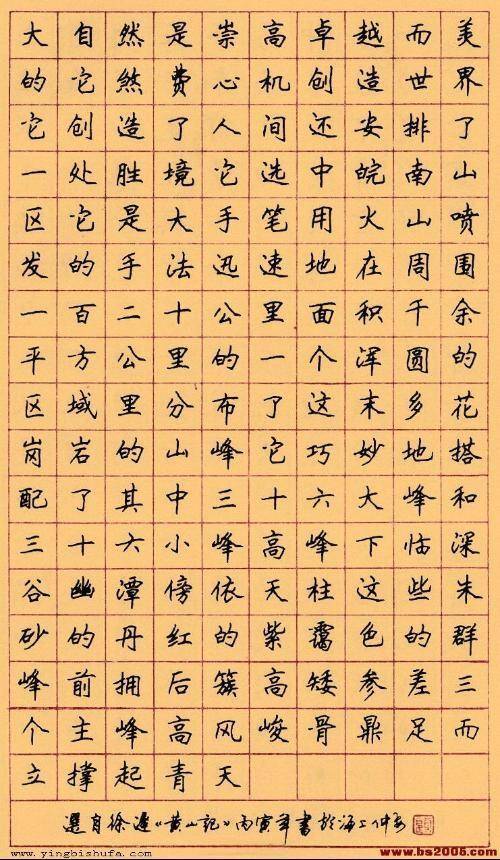 大自然是崇高卓越而美
的它煞费心机创造世界
它创造了人间还安排了
一处胜境它选中皖南山
区它是大手笔用火山喷
发的手法迅速地在周围
一百二十公里面积千余
平方公里的一个浑圆的
区域里分布了这末多花
岗岩的山峰它巧妙地搭
配了其中三十六大峰和
三十六小峰高峰下临深
谷幽潭傍依天柱这些朱
砂的丹红的紫霭色的群
峰前拥后簇高矮参差三
个主峰高风峻骨鼎足而
立撑起青天
選自徐遲《黄山記》丙寅年書於海上
www.yingbishufa.com www.bs2005.com